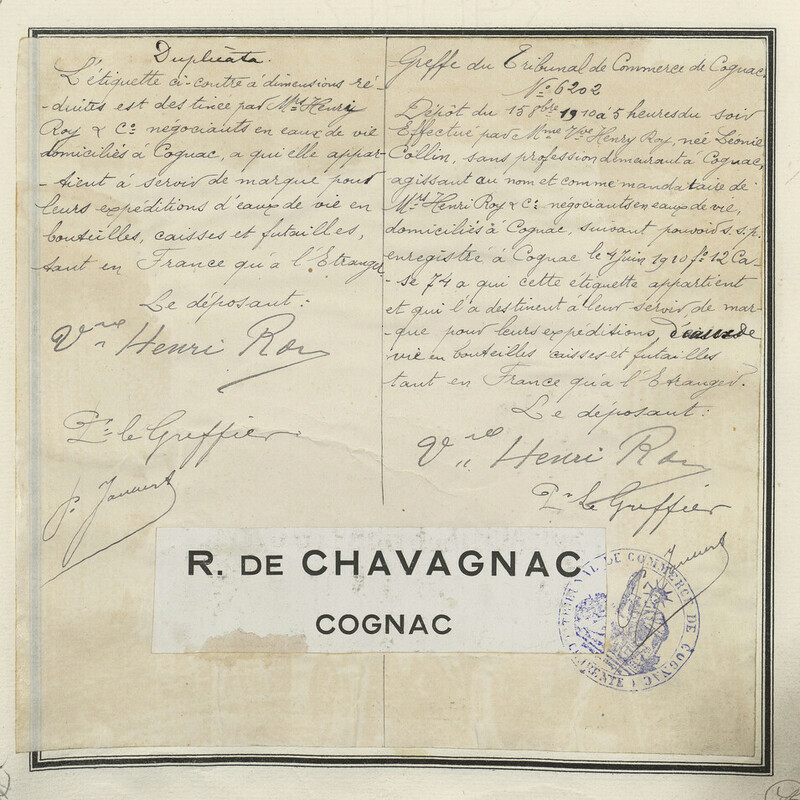 Duplicata.
L'étiquette ci-contre à dimensions ré-
-duites est destinée par Mrs Henry
Roy & Cie négociants en eaux de vie
domiciliés à Cognac, a qui elle appar-
-tient à servir de marque pour
leurs expéditions d'eaux de vie en
bouteilles, caisses et futailles,
tant en France qu'a l'Etranger
Le déposant :
Vve Henri Roy
Pr le Greffier
Greffe du Tribunal de Commerce de Cognac,
No 6202
Dépôt du 15 8bre 1910 à 5 heures du soir
Effectué par Mme Vve Henry Roy, née Léonie
Collin, sans profession demeurant à Cognac,
agissant au nom et comme mandataire de
Mrs Henri Roy & Cie négociants en eaux de vie,
domiciliés à Cognac, suivant pouvoir s.s.p.
enregistré à Cognac le 4 Juin 1910 fo 12 Ca-
-se 74 a qui cette étiquette appartient
et qui l'a destinent à leur servir de mar-
-que pour leurs expéditions d'eaux de
vie en bouteilles caisses et futailles
tant en France qu'à l'Etranger.
Le déposant :
Vve Henri Roy
Pr Le Greffier
R. DE CHAVAGNAC
COGNAC
TRIBUNAL DE COMMERCE DE COGNAC
(CHARENTE)